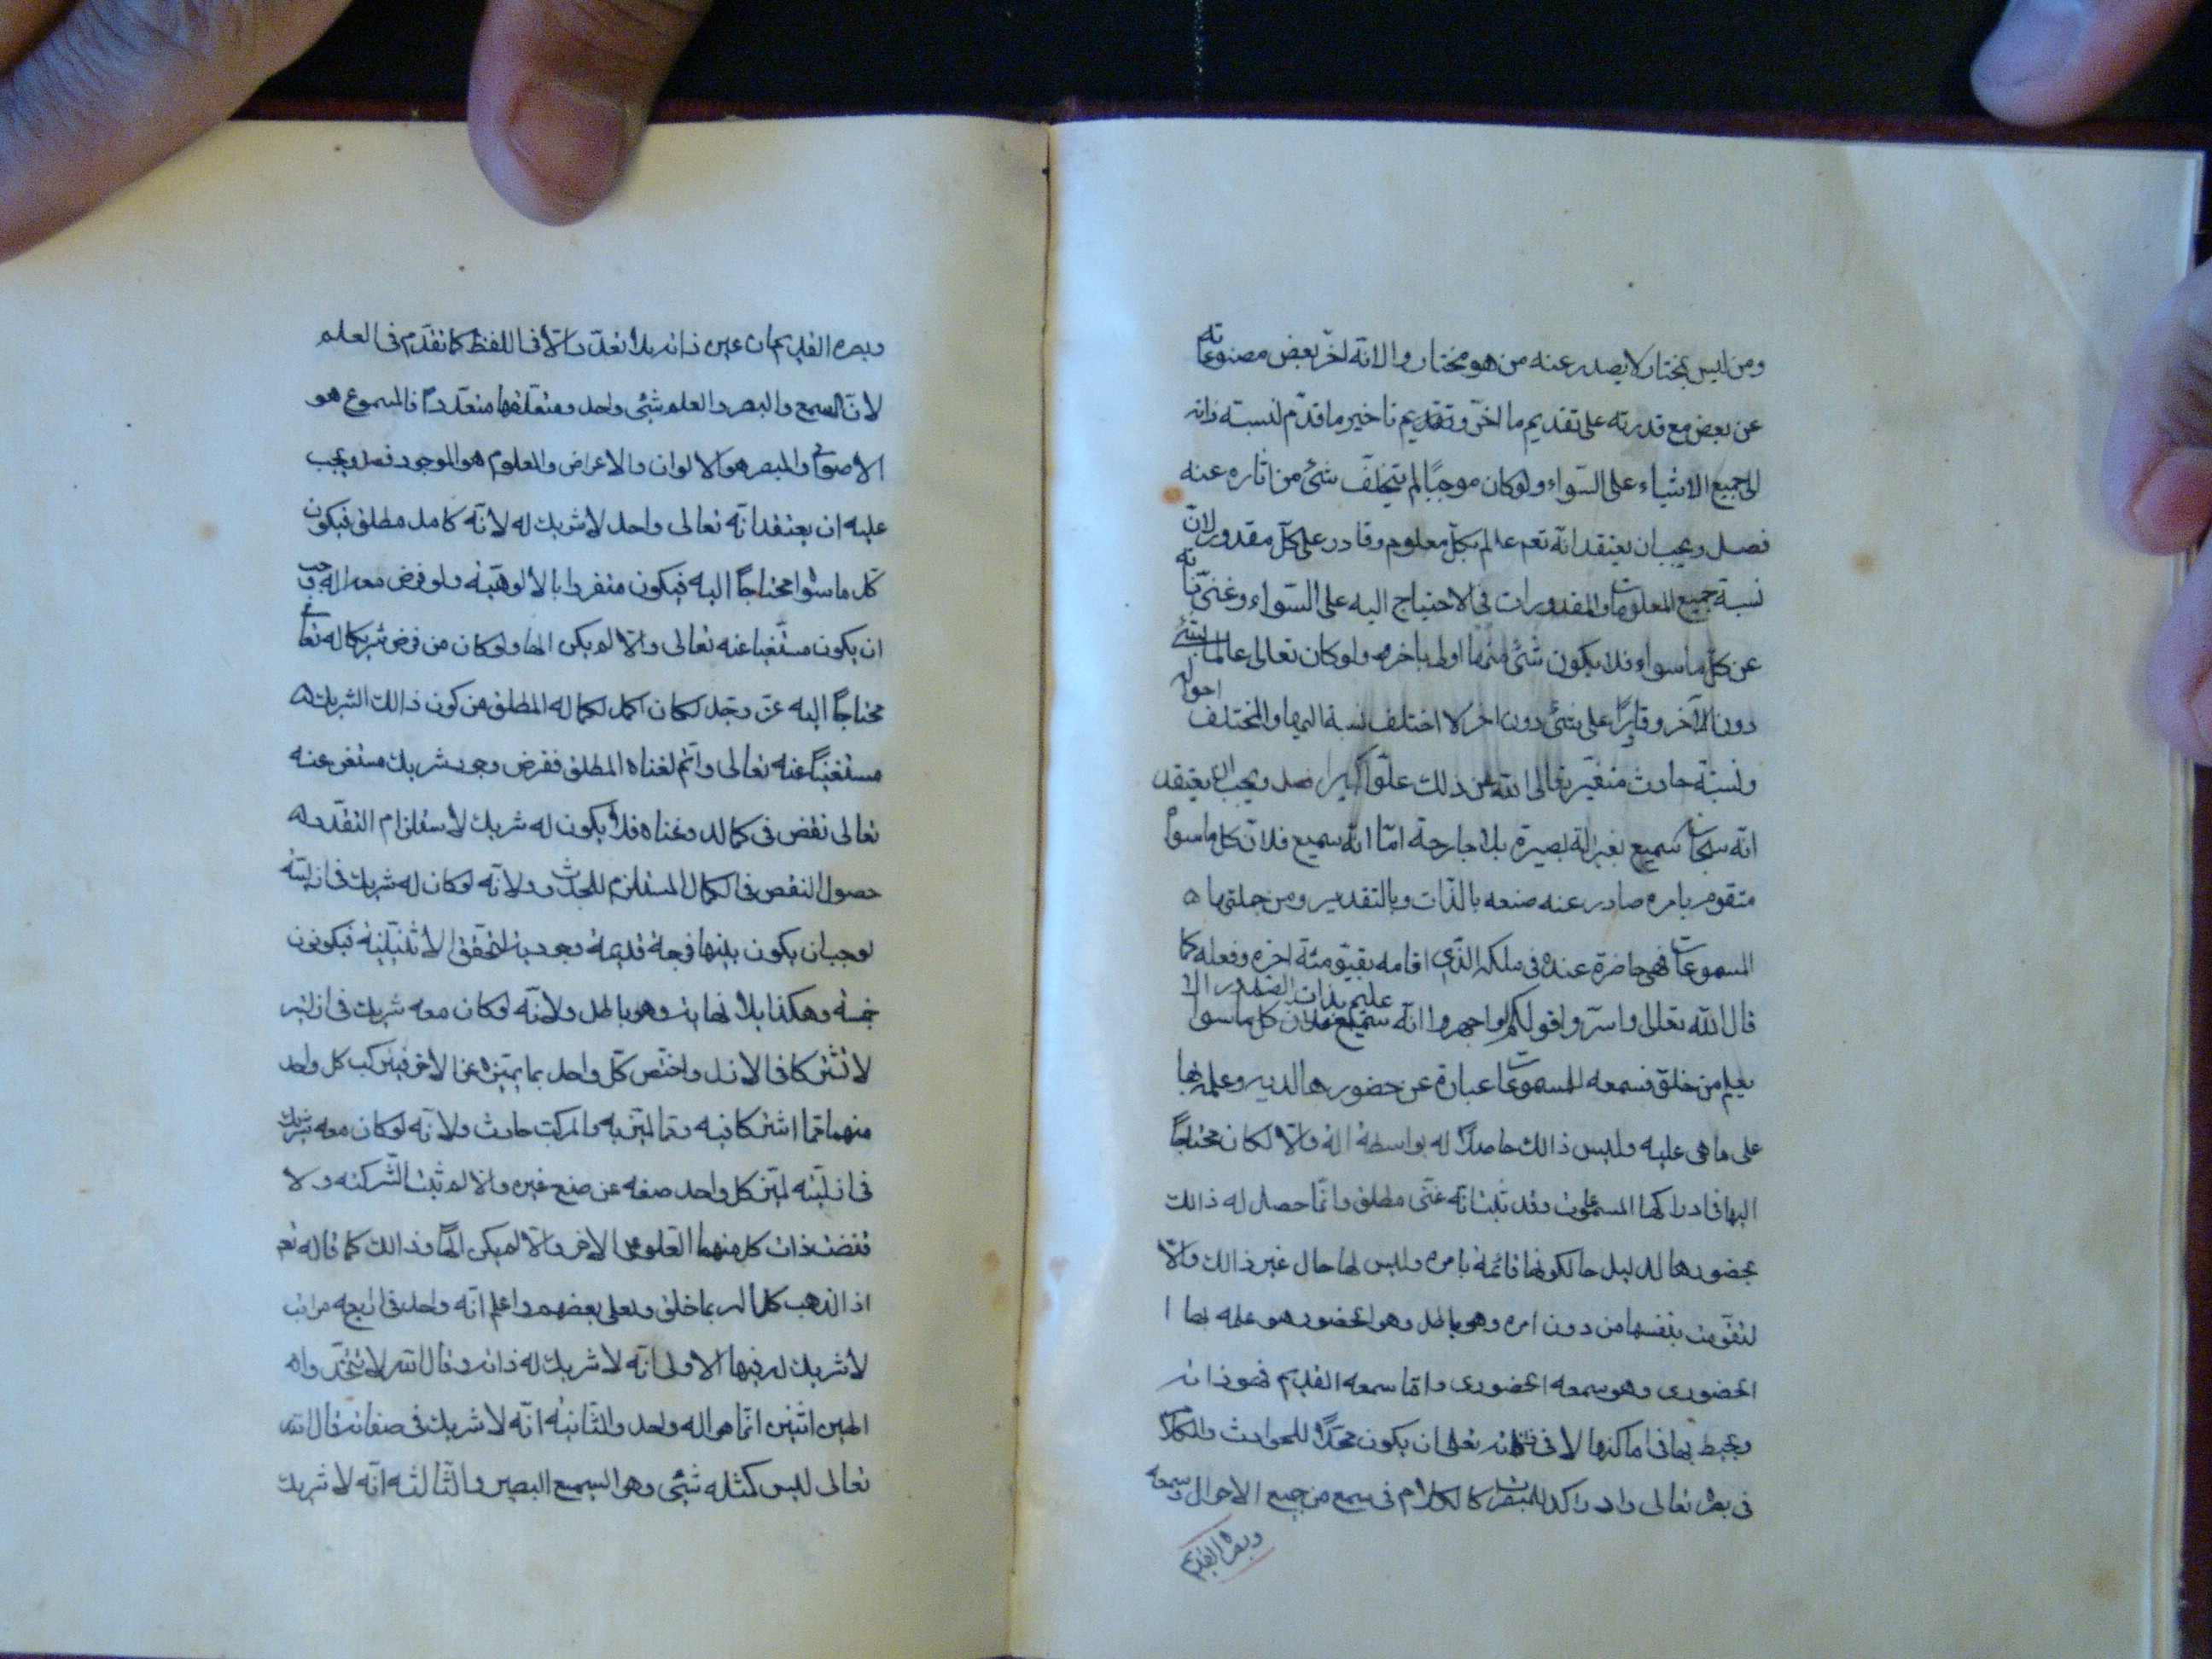 ومن ليس بمختار لا يصدر عنه من هو مختار والا انه اخر بعض مصنوعاته
عن بعض مع قدرته على تقديم ما اخر وتقديم تاخير ما قدم لنسبة ذاته
الى جميع الاشياء على السواء ولو كان موجبًا لم يتخلف شئ من اثاره عنه
فصل ويجب ان يعتقد انه تعم عالم بكل معلوم وقادر على كل مقدور لان
نسبة جميع المعلومات والمقدورات فى الاحتياج اليه على السواء وغنى ذاته
عن كل ماسواه فلا يكون شئ منها اولى باخره ولو كان تعالى عالما بشئ
دون الآخر وقادرًا على شئ دون اخر لاختلف نسبة اليها والمختلف احواله
ونسبته حادث متغير تعالى الله عن ذلك علوا كبيرا فصل ويجب ان يعتقد
انه سبحانه سميع بغير الة بصير بلا جارحة اما انه سميع فلان كل ماسواه
متقوم بامره صادر عنه صنعه بالذات وبالتقدير ومن جملتها ه
المسموعات فهى حاضرة عنده فى ملكه الذى اقامه بقيومية اخره وفعله كما
قال الله تعالى واسروا قولكم او اجهروا انه عليم بذات الصدور الا
يعلم من خلق فسمعه للمسموعات عبارة عن حضورها لديه وعلمه بها
على ما هى عليه وليس ذالك حاصلاً له بواسطة الة والا لكان محتاجًا
اليها فى ادراكها المسموعات وقد ثبت انه غنى مطلق وانما حصل له ذالك
بحضورها لديه لكونها قائمة بامره وليس لها حال غير ذالك والا
لتقومت بنفسها من دون امره وهو باطل وهو الحضور هو علمه بها ا
الحضورى وهو سمعه الحضورى واما سمعه القديم فهو ذاته
ويحيط بها فى اماكنها لا فى ذاته تعالى ان يكون محلاً للحوادث والكلام
فى بصره تعالى وادراكه للمبصرات كالكلام فى سمع من جميع الاحوال وسمعه
وبصره القديم
وبصره القديمان عين ذاته بلا تعدد والا فى اللفظ كما تقدم فى العلم
لان السمع والبصر والعلم شئى واحد ومتعلقها متعدد فالمسموع هو
الاصوات والمبصر هو الالوان والاعراض والمعلوم هو الموجود فصل ويجب
عليه ان يعتقد انه تعالى واحد لا شريك له لانه كامل مطلق فيكون
كل ماسواه محتاجًا اليه فيكون منفردا بالالوهية ولو فرض معه اله وجب
ان يكون مستغنيا عنه تعالى والا لم يكن الها ولو كان من فرض شريكا له تعالى
محتاجًا اليه عز وجل لكان اكمل لكماله المطلق من كون ذالك الشريك ه
مستغنيًا عنه تعالى واتم لغناه المطلق ففرض وجود شريك مستغن عنه
تعالى نقص فى كماله وغناه فلا يكون له شريك لاستلزام التعدد له
حصول النقص فى الكمال المستلزم للحدث ولانه لو كان له شريك فى ازليته
لوجب ان يكون بينهما فرجة قديمة وجودية لتحقق الاثنينية فيكونون
خمسة وهكذا بلا نهاية وهو باطل ولانه لو كان معه شريك فى ازليته
لاشتركا فى الازل واختص كل واحد بما يميزه عن الاخر فيتركب كل واحد
منهما مما اشتركا فيه ومما تميز به والمركب حادث ولانه لو كان معه شريك
فى ازليته لميز كل واحد صنعه عن صنع غيره والا لم تثبت الشركة ولا
قتضت ذات كل منهما العلو على الاخر والا لم يكن الهًا وذالك كما قال تعم
اذا لذهب كل اله بما خلق ولعلى بعضهم واعلم انه واحد فى اربعة مراتب
لا شريك له فيها الاولى انه لا شريك له ذاته وقال الله لا تتخذوا ه
الهين اثنين انما هو اله واحد والثانية انه لا شريك فى صفاته قال الله
تعالى ليس كمثله شئى وهو السميع البصير والثالثة انه لا شريك